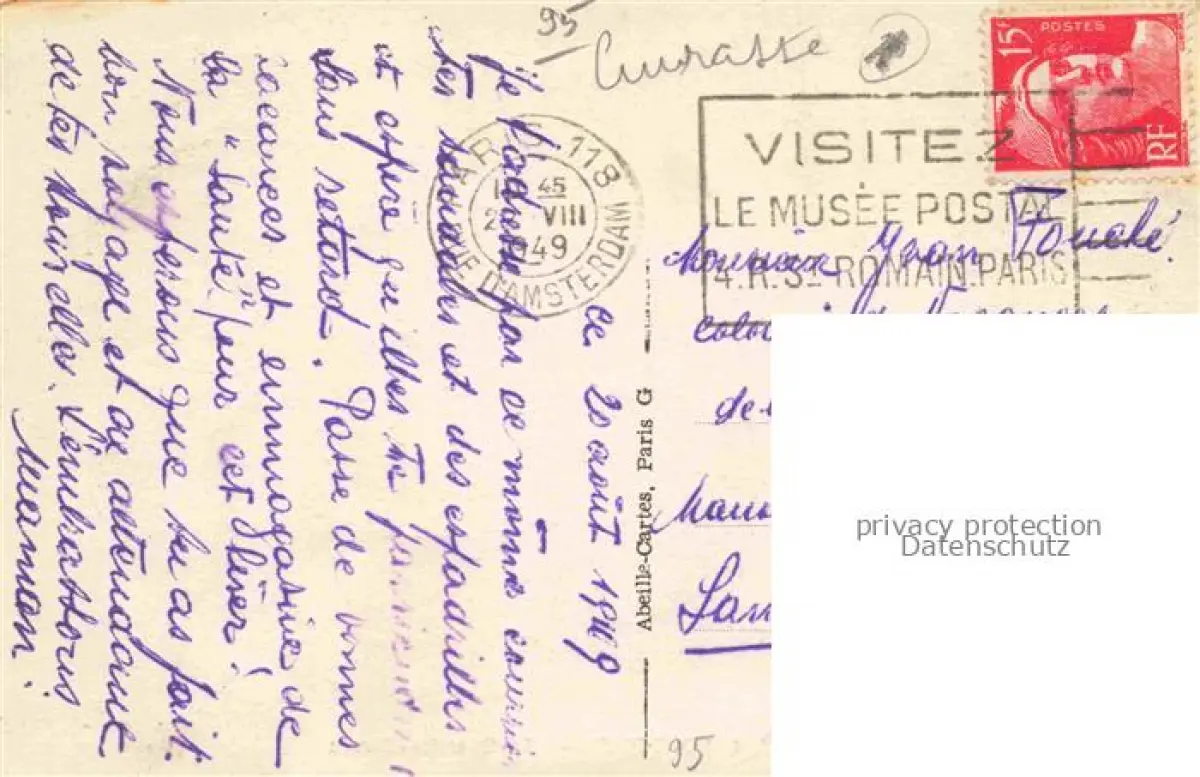 95
15F
POSTES
RF
VISITEZ
LE MUSÉE POSTAL
4.R.St-ROMAIN.PARIS
PARIS 118
45
VIII
1949
D'AMSTERDAM
ce 20 août 1949
Je t'adresse par ce même courrier
tes sandales et des espadrilles
et espère qu'elles te parviendront
sans retard. Passe de bonnes
vacances et emmagasine de
la "Santé" pour cet hiver!
Nous espérons que tu as fait
bon voyage et on attendant
de tes nouvelles. t'embrassons
Maman.
Abeille-Cartes, Paris G
Monsieur Jean Fouché.
colonie de Vacances
de
San
privacy protection
Datenschutz
95